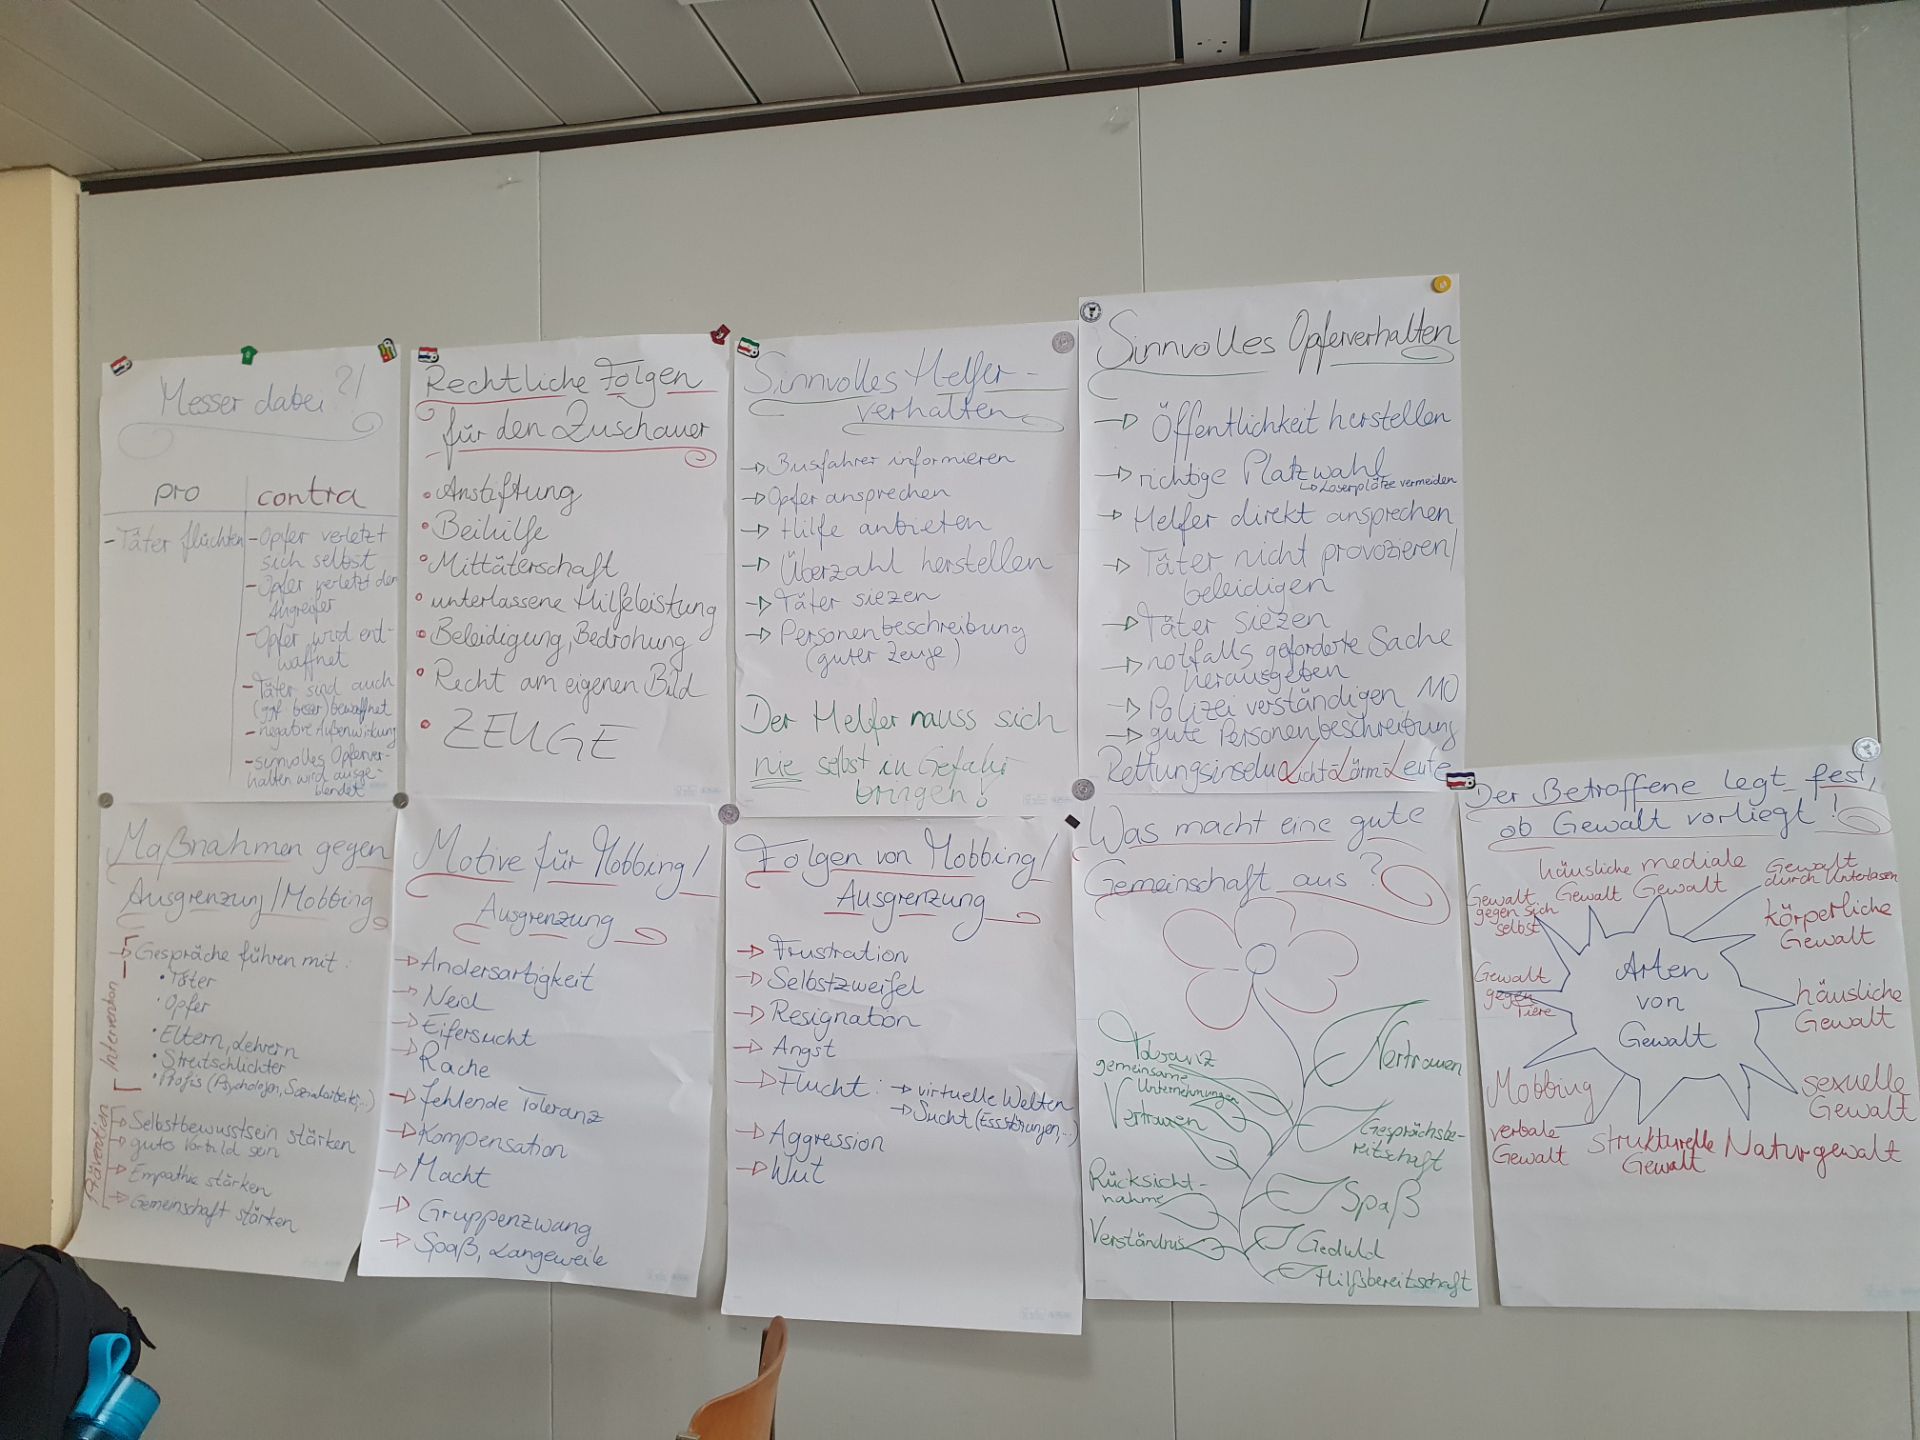 Messer dabei ?!
pro
contra
- Täter flüchten
- Opfer verletzt
sich selbst
- Opfer verletzt den
Angreifer
- Opfer wird ent-
waffnet
- Täter sind auch
(ggf. besser) bewaffnet
- negative Außenwirkung
- sinnvolles Opferver-
halten wird ausge-
blendet
Rechtliche Folgen
für den Zuschauer
• Anstiftung
• Beihilfe
• Mittäterschaft
• unterlassene Hilfeleistung
• Beleidigung, Bedrohung
• Recht am eigenen Bild
• ZEUGE
Sinnvolles Helfer-
verhalten
→ Busfahrer informieren
→ Opfer ansprechen
→ Hilfe anbieten
→ Überzahl herstellen
→ Täter siezen
→ Personenbeschreibung
(guter Zeuge)
Der Helfer muss sich
nie selbst in Gefahr
bringen!
Sinnvolles Opferverhalten
→ Öffentlichkeit herstellen
→ richtige Platzwahl
↳ Loserplätze vermeiden
→ Helfer direkt ansprechen
→ Täter nicht provozieren/
beleidigen
→ Täter siezen
→ notfalls geforderte Sache
herausgeben
→ Polizei verständigen 110
→ gute Personenbeschreibung
Rettungsinseln Licht-Lärm-Leute
Maßnahmen gegen
Ausgrenzung/Mobbing
Intervention
→ Gespräche führen mit:
• Täter
• Opfer
• Eltern, Lehrern
• Streitschlichter
• Profis (Psychologen, Sozialarbeiter,...)
Prävention
→ Selbstbewusstsein stärken
→ gutes Vorbild sein
→ Empathie stärken
→ Gemeinschaft stärken
Motive für Mobbing/
Ausgrenzung
→ Andersartigkeit
→ Neid
→ Eifersucht
→ Rache
→ fehlende Toleranz
→ Kompensation
→ Macht
→ Gruppenzwang
→ Spaß, Langeweile
Folgen von Mobbing/
Ausgrenzung
→ Frustration
→ Selbstzweifel
→ Resignation
→ Angst
→ Flucht: → virtuelle Welten
→ Sucht (Essstörungen,...)
→ Aggression
→ Wut
Was macht eine gute
Gemeinschaft aus?
Toleranz
gemeinsame
Unternehmungen
Vertrauen
Rücksicht-
nahme
Verständnis
Vertrauen
Gesprächsbe-
reitschaft
Spaß
Geduld
Hilfsbereitschaft
Der Betroffene legt fest,
ob Gewalt vorliegt!
Gewalt
gegen sich
selbst
häusliche
Gewalt
mediale
Gewalt
Gewalt
durch Unterlasen
körperliche
Gewalt
Arten
von
Gewalt
Gewalt
gegen
Tiere
häusliche
Gewalt
Mobbing
sexuelle
Gewalt
verbale
Gewalt
strukturelle
Gewalt
Naturgewalt